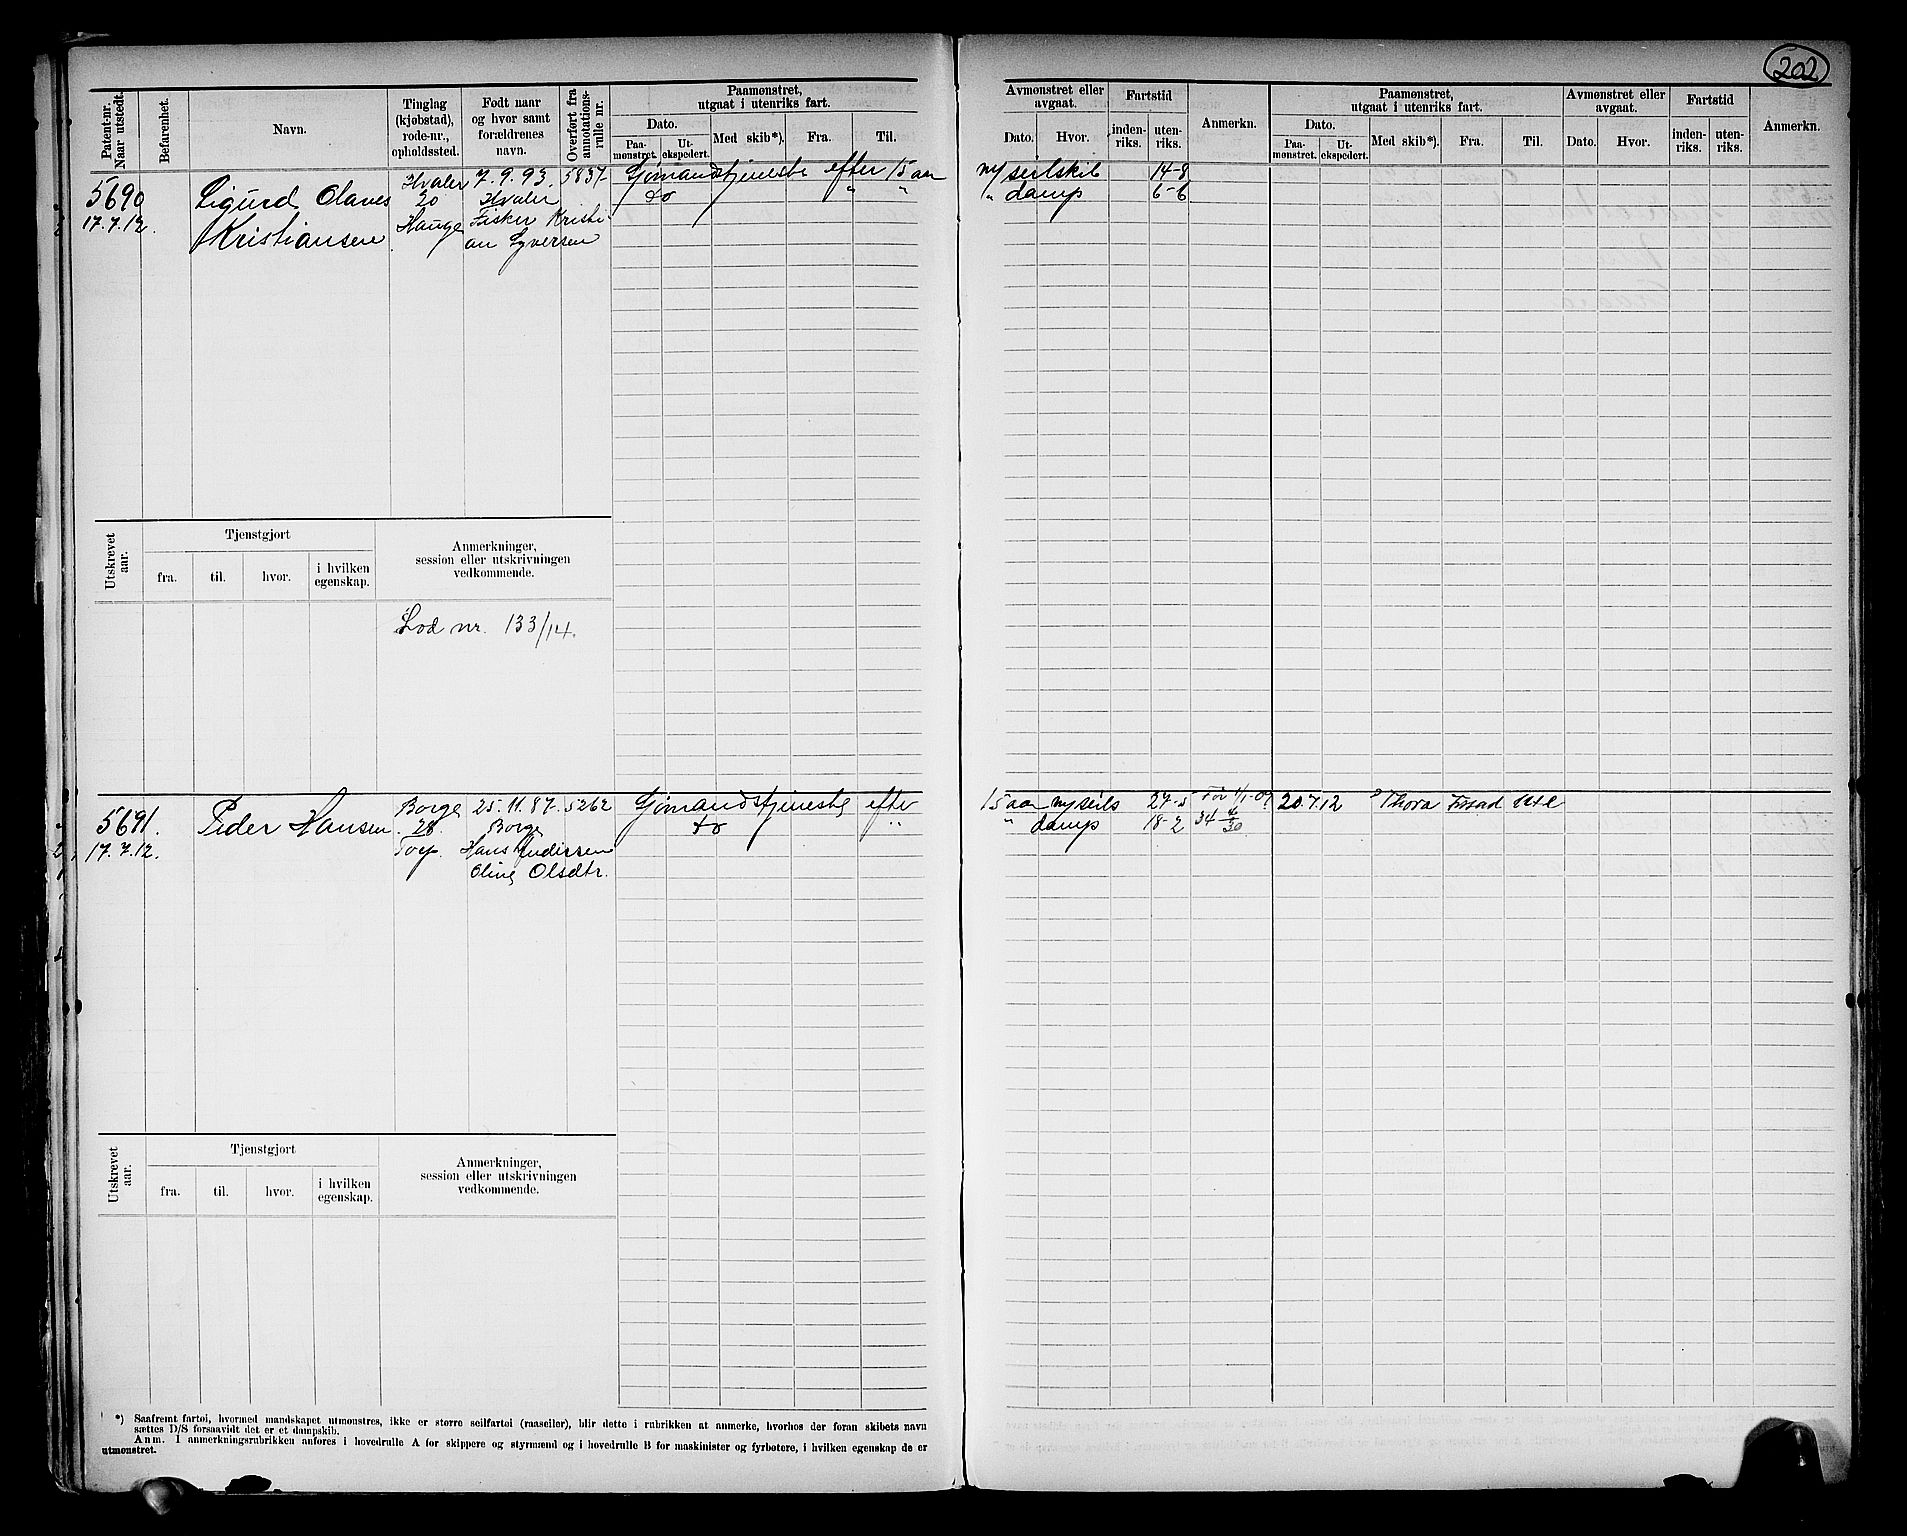 202
Patent-nr. Naar utstedt.
Befarenhet.
Navn.
Tinglag (kjøbstad), rode-nr., opholdssted.
Født naar og hvor samt forældrenes navn.
Overført fra annotationsrulle nr.
Paamønstret, utgaat i utenriks fart.
Dato.
Paamønstret.
Utekspedert.
Med skib*).
Fra.
Til.
Avmønstret eller avgaat.
Dato.
Hvor.
Fartstid
indenriks.
utenriks.
Anmerkn.
Paamønstret, utgaat i utenriks fart.
Dato.
Paamønstret.
Utekspedert.
Med skib*).
Fra.
Til.
Avmønstret eller avgaat.
Dato.
Hvor.
Fartstid
indenriks.
utenriks.
Anmerkn.
5690 Sigurd Olaves Hvaler 7.9.93. 5837 Sjømandstjeneste efter 15 aar m/ seilskib 14-8
17.7.12. Kristiansen 20 Hvaler do " " " damp 6-6
Hauge Fisker Kristi-
an Syversen
Utskrevet aar.
Tjenstgjort
fra.
til.
hvor.
i hvilken egenskap.
Anmerkninger, session eller utskrivningen vedkommende.
Lod nr. 133/14.
5691. Peder Hansen Borge 25.11.87. 5262 Sjømandstjeneste efter 15 aar m/ seils 27-5 Før 1/1-09 20.7.12 Thora
17.7.12. 28. Borge do " " damp 18-2 34
Torp. Hans Andersen
Oline Olsdtr.
Utskrevet aar.
Tjenstgjort
fra.
til.
hvor.
i hvilken egenskap.
Anmerkninger, session eller utskrivningen vedkommende.
*) Saafremt fartøi, hvormed mandskapet utmønstres, ikke er større seilfartøi (raaseiler), blir dette i rubrikken at anmerke, hvorhos der foran skibets navn
sættes D/S forsaavidt det er et dampskib.
Anm. I anmerkningsrubrikken anføres i hovedrulle A for skippere og styrmænd og i hovedrulle B for maskinister og fyrbøtere, i hvilken egenskap de er
utmønstret.